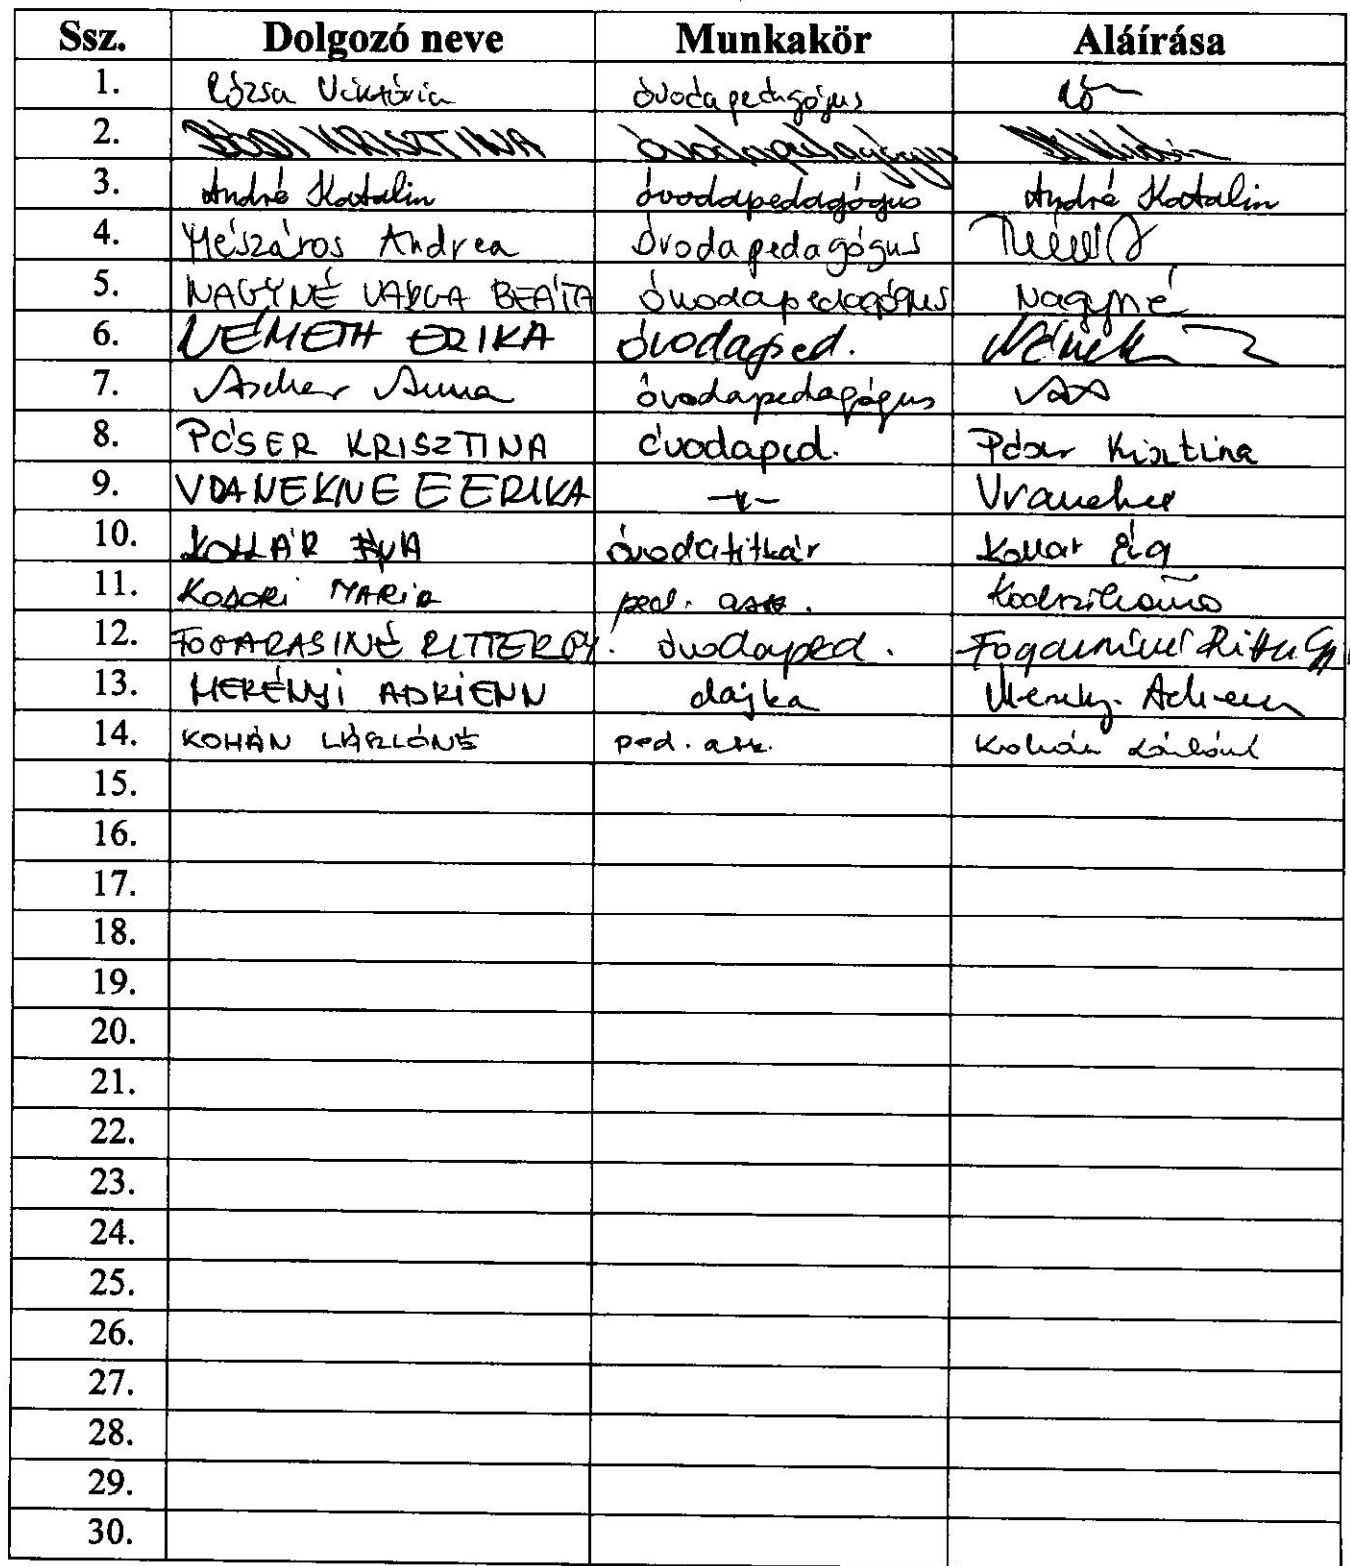 Ssz. Dolgozó neve Munkakör Aláírása
1. Rózsa Viktória óvodapedagógus
2. BÓDI KRISZTINA óvodapedagógus
3. André Katalin óvodapedagógus André Katalin
4. Mészáros Andrea óvodapedagógus
5. NAGYNÉ VARGA BEÁTA óvodapedagógus Nagyné
6. NÉMETH ERIKA óvodaped. Németh
7. Ascher Anna óvodapedagógus
8. PÓSER KRISZTINA óvodaped. Póser Krisztina
9. VRANEKNE E ERIKA -"-
10. KOLLÁR ÉVA óvodatitkár Kollár Éva
11. MARIA ped. assz.
12. FOGARASINÉ RITTER GY. óvodaped. Fogarasiné Ritter Gy
13. MERÉNYI ADRIENN dajka Merényi Adrienn
14. KOHÁN LÁSZLÓNÉ ped. assz. Kohán Lászlóné
15.
16.
17.
18.
19.
20.
21.
22.
23.
24.
25.
26.
27.
28.
29.
30.